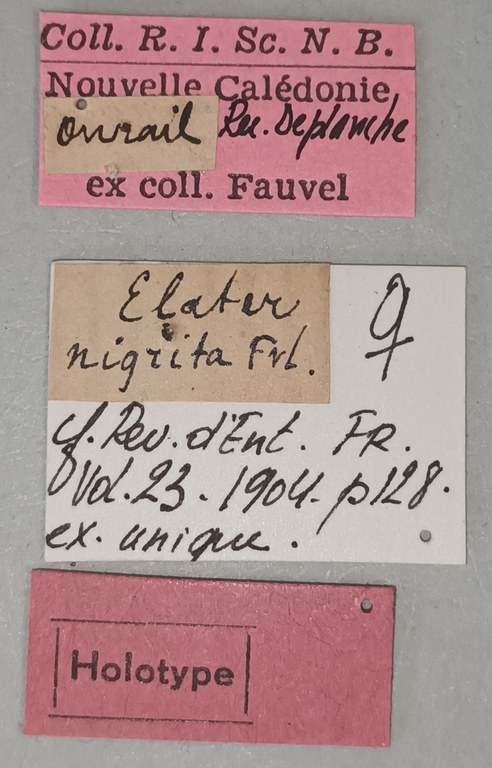 Coll. R. I. Sc. N. B.
Nouvelle Calédonie,
ourail Rec. Deplanche
ex coll. Fauvel
Elater
nigrita Frl. ♀
cf. Rev. d'Ent. FR.
Vol. 23. 1904. p128.
ex. unique.
Holotype